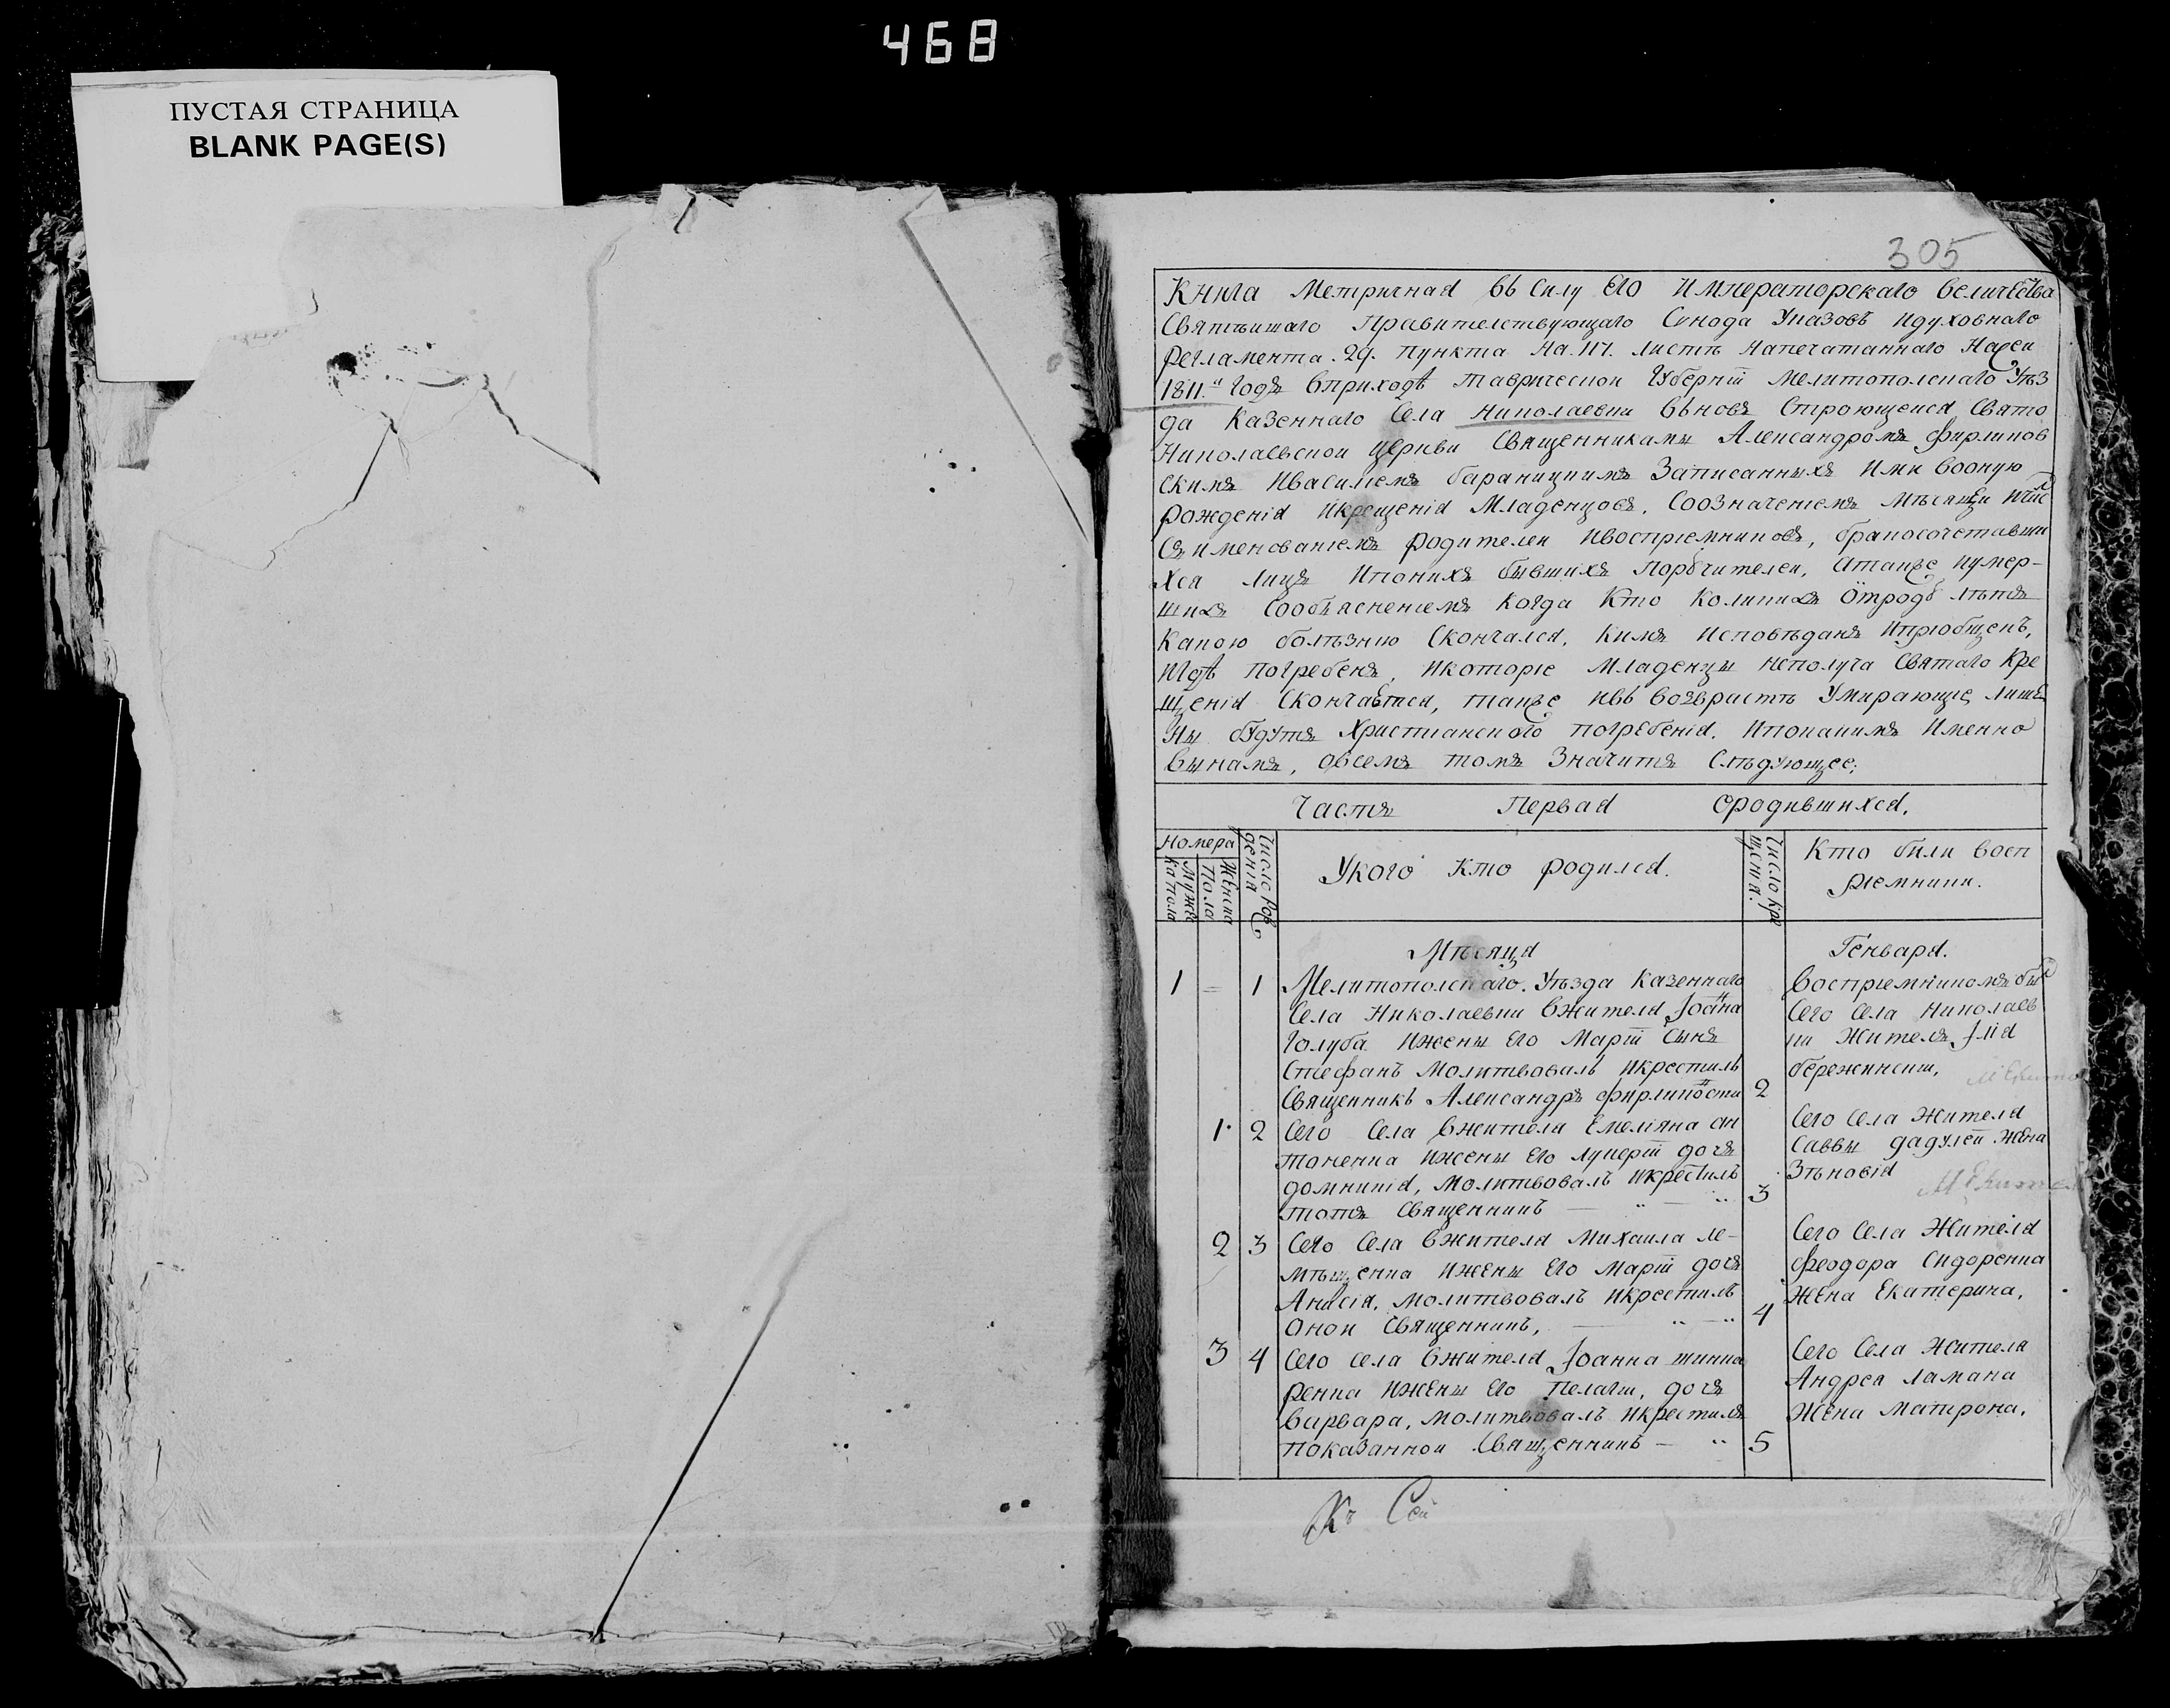 468
ПУСТАЯ СТРАНИЦА
BLANK PAGE(S)
305
Книга Метричная въ Силу Его Императорскаго Величества
Святѣишаго Правителствующаго Сѵнода Указовъ Идуховнаго
Регламента. 29. пункта На. 117. листѣ Напечатаннаго Насеи
1811.и годъ Вприходѣ Таврическои Губернїи Мелитополскаго Уѣз
да Казеннаго Села Николаевки Вьновъ Строющеися Свято
Николаевскои Церкви Священниками Александромъ Фирлинов
скимъ Ивасилиемъ бараницкимъ Записанныхъ Ими Вооную
Рожденія Икрещенія Младенцовъ, Соозначениемъ Мѣсяцеи
Съименованиемъ родителеи Ивосприемниковъ, бракосочетавши
хся лицъ Ипонихъ бывшихъ Поручителеи, Атакже Иумер-
шихъ Сообъяснениемъ Когда Кто Коликихъ Отроду лѣтъ
Какою болѣзнию Скончался, Кимъ Исповѣданъ Иприобщенъ,
Игдѣ погребенъ, Икоторие Младенцы Неполуча Святаго Кре
щенія Скончаются, также Ивъ Возврастѣ Умирающие лише
Ны будутъ Християнского погребенія. Ипокакимъ Именно
Винамъ, Овсемъ томъ Значитъ Слѣдующее;
Частъ Первая Ородившихся.
Номера
Мужес
ка пола
Женска
Пола
Число Рож
дения
Укого Кто родился.
Число Кре
щения.
Кто били Восп
риемники.
Мѣсяца Генваря.
1 = 1 Мелитополскаго. Уѣзда Казеннаго
Села Николаевки Вжителя Іоанна
Голуба Ижены Его Марїи Сынъ
Стефанъ Молитвовалъ Икрестилъ
Священникъ Александръ Фирлиновски 2
Восприемникомъ был
Сего Села Николаев
ки Жителъ Ілія
бережинский,
1. 2 Сего Села Вжителя Емелияна Ан
тоненка Ижены Его Лукерїи дочъ
домникія, Молитвовалъ Икрестилъ
тотъ Священникъ — „ — „ 3
Сего Села Жителя
Саввы Жена
Зѣновія
2 3 Сего Села Вжителя Михаила Ле-
мѣщенка Ижены Его Марїи дочъ
Анисія, Молитвовалъ Икрестилъ
Онои Священникъ, — „ — „ 4
Сего Села Жителя
Феодора Сидоренка
Жена Екатерина,
3 4 Сего села Вжителя Іоанна шинка
ренка Ижены Его Пелагии, дочъ
Варвара, Молитвовалъ Икрестилъ
показаннои Священникъ — „ 5
Сего Села Жителя
Андрея Ламана
Жена Матрона,
Къ Сеи